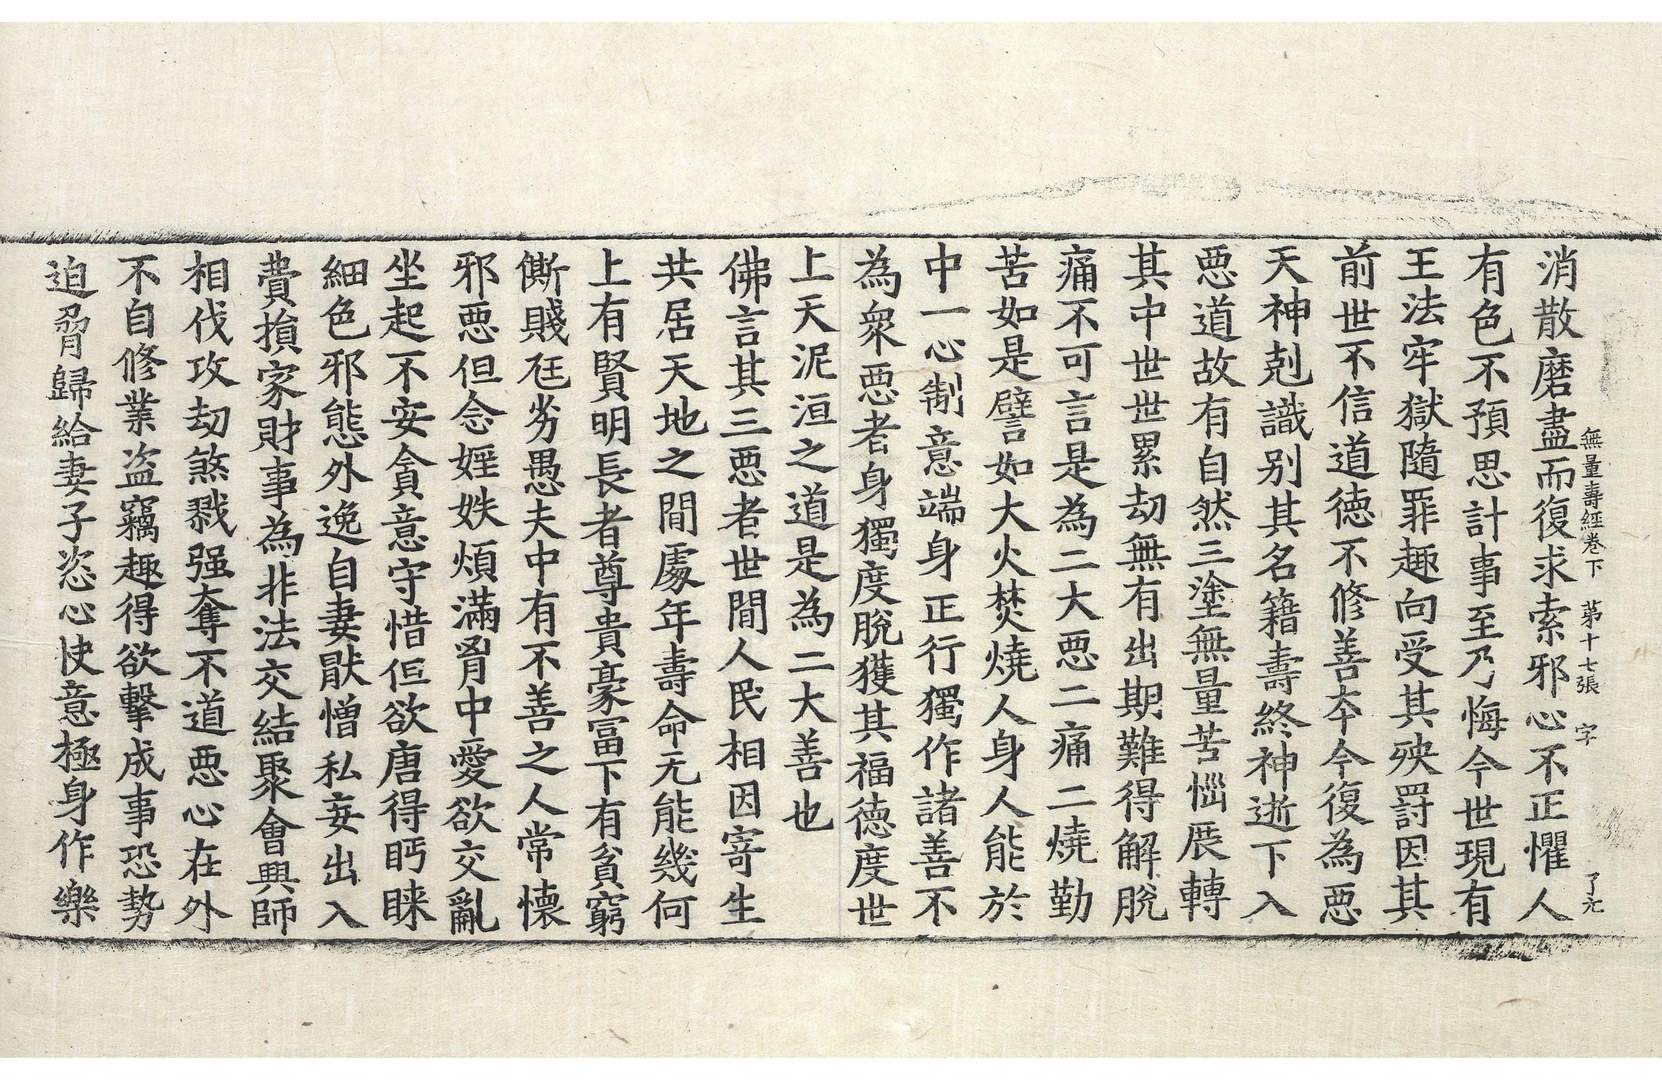 無量壽經卷下　第十七張　字　了元
消散磨盡而復求索邪心不正懼人
有色不預思計事至乃悔今世現有
王法牢獄隨罪趣向受其殃罸因其
前世不信道德不修善夲今復為惡
天神剋識別其名籍壽終神逝下入
惡道故有自然三塗無量苦惱展轉
其中世世累劫無有出期難得解脫
痛不可言是為二大惡二痛二燒勤
苦如是譬如大火焚燒人身人能於
中一心制意端身正行獨作諸善不
為衆惡者身獨度脫獲其福德度世
上天泥洹之道是為二大善也
佛言其三惡者世間人民相因寄生
共居天地之間處年壽命无能幾何
上有賢明長者尊貴豪冨下有貧窮
廝賤尫劣愚夫中有不善之人常懷
邪惡但念婬妷煩滿胷中愛欲交亂
坐起不安貪意守惜但欲唐得眄睞
細色邪態外逸自妻猒憎私妄出入
費損家財事為非法交結聚會興師
相伐攻劫煞戮强奪不道惡心在外
不自修業盗竊趣得欲擊成事恐勢
迫脅歸給妻子恣心快意極身作樂